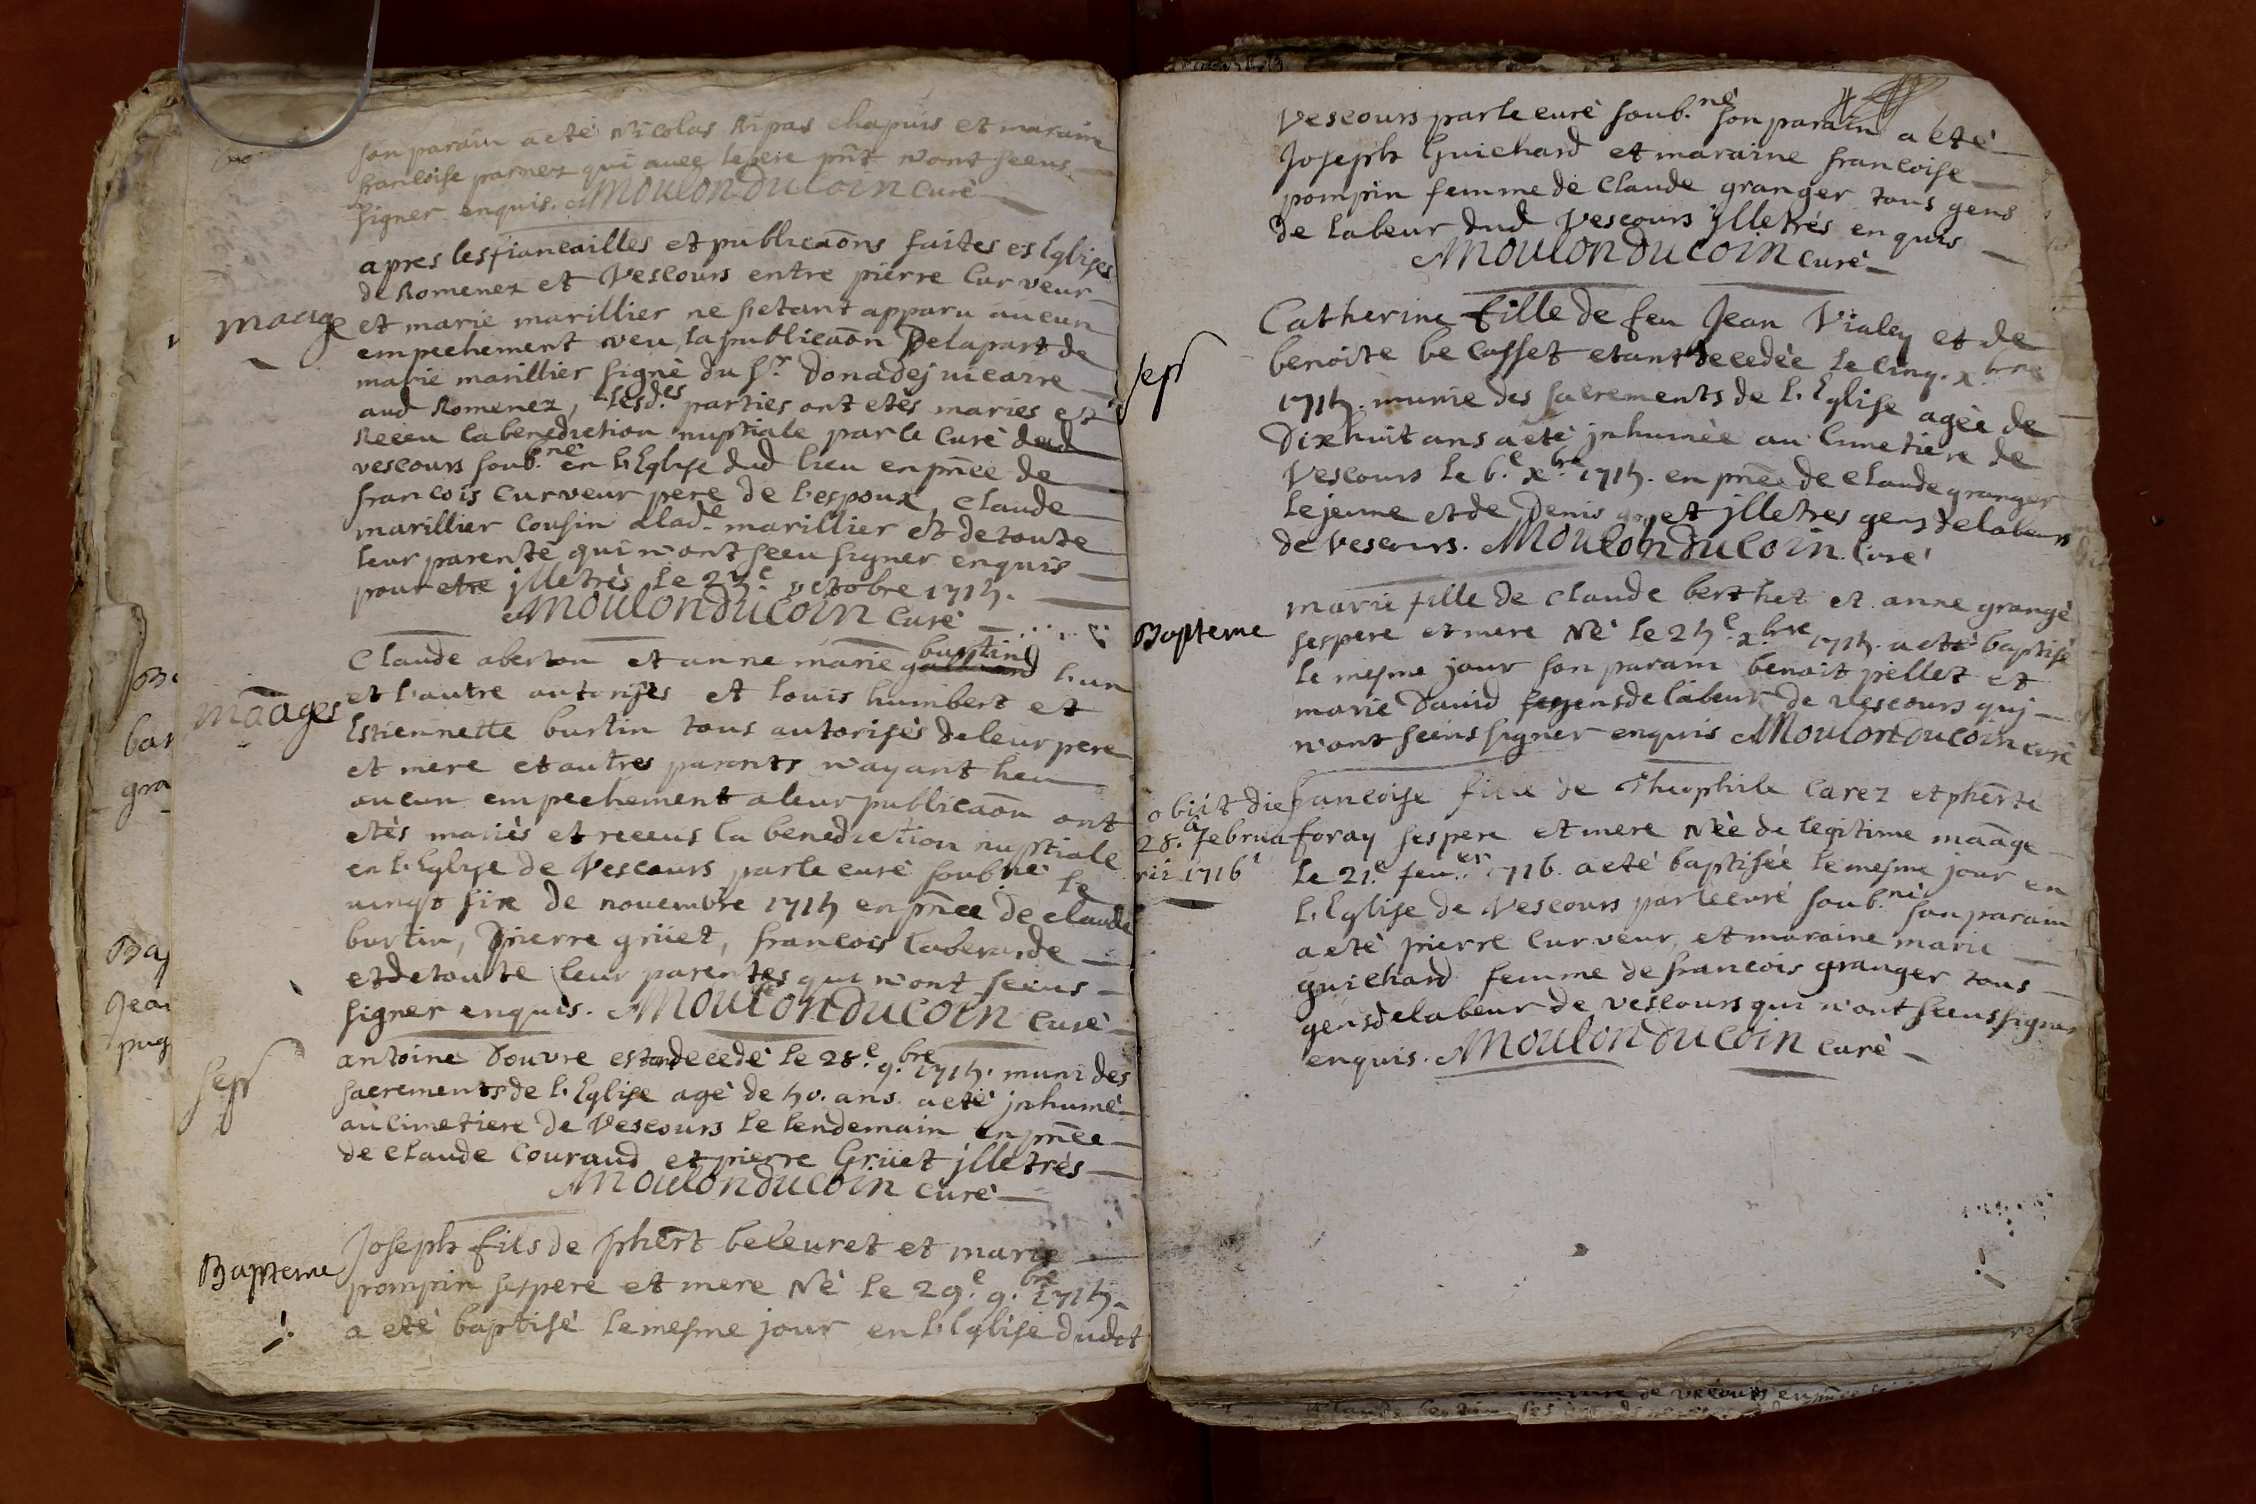 son parain a eté Nicolas Ripas chapuis et maraine
francoise parnez qui avec le pere pñt n'ont sceus
signer enquis. Moulonducoin Curé
apres les fiancailles et publicaõns faites es Eglises
de Romenez et Vescours entre pierre Curveur
maãge et marie marillier ne s'etant apparu aucun
empechement veu la publicaõn Delapart de
marie marillier signé du Sr. Donadej vicaire
aud Romenez, lesd.es parties ont etés mariés et
Receu la benediction nuptiale par le Curé dud
vescours soub.né en l'Eglise dud lieu en pñce de
francois Curveur pere de l'espoux, Claude
marillier Cousin a lad.e marillier et de toute
leur parenté qui n'ont sceu signer enquis
pour etre jlletrés le 25.e octobre 1715.
Moulonducoin Curé
Claude aberton et anne marie burtin l'un
maãges et l'autre autorisés et louis humbert et
Estiennette burtin tous autorisés de leur pere
et mere et autres parents n'ayant heu
aucun empechement a leur publicaõn ont
etés mariés et receus la benediction nuptiale
en l'Eglise de Vescours par le curé soubné le
vingt six de novembre 1715 en pñce de claude
burtin, pierre grüet, francois
et de toute leur parentés qui n'ont sceus
signer enquis. Moulonducoin Curé
sepr antoine Douvre estant decedé le 28.e 9.bre 1715. muni des
sacrements de l'Eglise agé de 50. ans a eté jnhumé
au cimetiere de Vescours le lendemain en pñce
de Claude Couraud et pierre Grüet jlletrés
Moulonducoin curé
Joseph fils de phert beleuret et marie
Bapteme pompin ses pere et mere Né le 29.e 9.bre 1715.
a eté baptisé le mesme jour en l'Eglise dudt
Vescours par le curé soub.né son parain a eté
Joseph Guichard et maraine francoise
pompin femme de Claude granger tous gens
de labeur dud Vescours jlletrés enquis
Moulonducoin curé
Catherine fille de feu Jean Vialey et de
sepr benoite becasset etant decedée le cinq. x.bre
1715. munie des sacrements de l'Eglise agée de
Dixhuit ans a eté jnhumée au Cimetiere de
Vescours le 6.e x.bre 1715. en pñce de claude granger
le jeune et de Denis jlletres gens de labeur
de vescours. Moulonducoin. Curé
marie fille de claude berthet et anne grangé
Bapteme ses pere et mere Né le 25.e x.bre 1715. a eté baptisé
le mesme jour son parain benoit pellet et
marie David gens de labeur de vescours quj
n'ont sceus signer enquis Moulonducoin curé
obiit die francoise fille de Theophile Carez et pherte
28.a februa foray ses pere et mere Née de legitime maãge
rii 1716 le 21.e feu.er 1716. a eté baptisée le mesme jour en
l'Eglise de Vescours par le curé soub.né son parain
a eté pierre Curveur, et maraine marie
guichard femme de francois granger tous
gens de labeur de vescours qui n'ont sceus signer
enquis. Moulonducoin curé